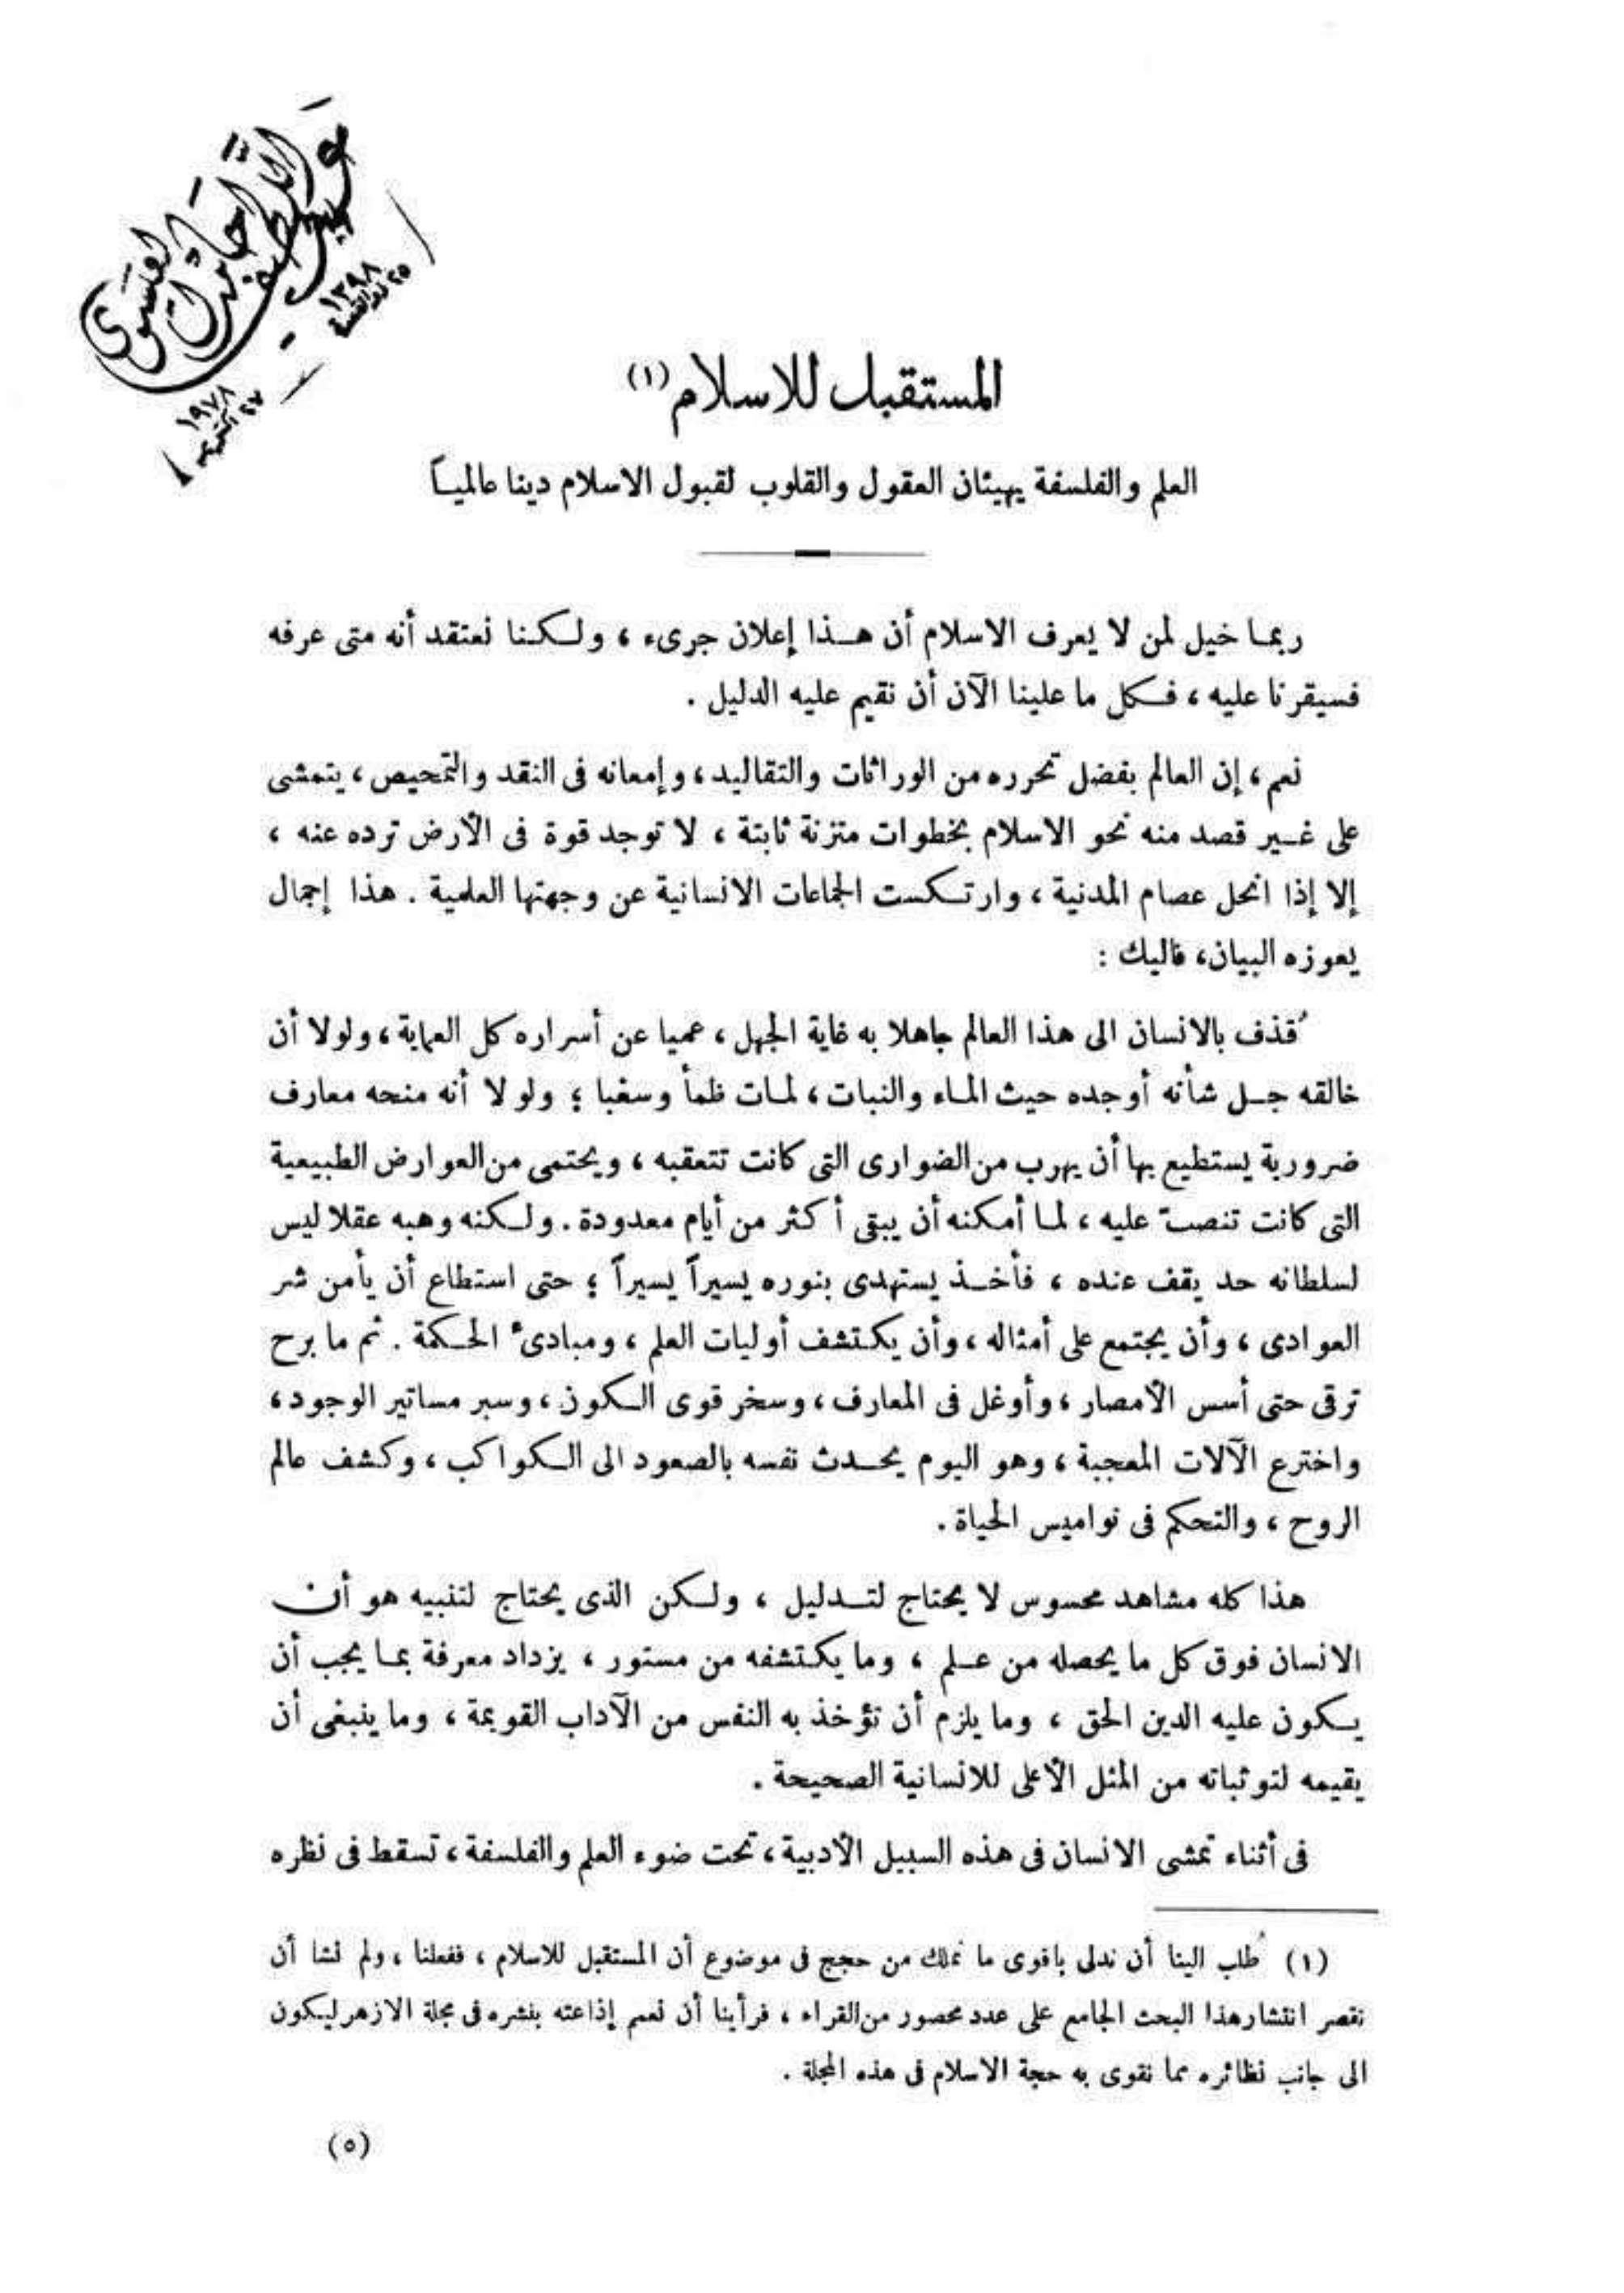 ١٣٩٨
٢٥ ذو القعدة
١٩٧٨
٢٧ أكتوبر
المستقبل للاسلام (١)
العلم والفلسفة يهيئان العقول والقلوب لقبول الاسلام دينا عالمياً
ربما خيل لمن لا يعرف الاسلام أن هذا إعلان جرىء ، ولكنا نعتقد أنه متى عرفه
فسيقرنا عليه ، فكل ما علينا الآن أن نقيم عليه الدليل .
نعم ، إن العالم بفضل تحرره من الوراثات والتقاليد ، وإمعانه فى النقد والتمحيص ، يتمشى
على غير قصد منه نحو الاسلام بخطوات متزنة ثابتة ، لا توجد قوة فى الأرض ترده عنه ،
إلا إذا انحل عصام المدنية ، وارتكست الجماعات الانسانية عن وجهتها العلمية . هذا إجمال
يعوزه البيان ، فاليك :
ُقذف بالانسان الى هذا العالم جاهلا به غاية الجهل ، عميا عن أسراره كل العماية ، ولولا أن
خالقه جل شأنه أوجده حيث الماء والنبات ، لمات ظمأ وسغبا ؛ ولولا أنه منحه معارف
ضرورية يستطيع بها أن يهرب من الضوارى التى كانت تتعقبه ، ويحتمى من العوارض الطبيعية
التى كانت تنصبّ عليه ، لما أمكنه أن يبقى أكثر من أيام معدودة . ولكنه وهبه عقلا ليس
لسلطانه حد يقف عنده ، فأخذ يستهدى بنوره يسيراً يسيراً ؛ حتى استطاع أن يأمن شر
العوادى ، وأن يجتمع على أمثاله ، وأن يكتشف أوليات العلم ، ومبادىء الحكمة . ثم ما برح
ترقى حتى أسس الأمصار ، وأوغل فى المعارف ، وسخر قوى الكون ، وسبر مساتير الوجود ،
واخترع الآلات المعجبة ، وهو اليوم يحدث نفسه بالصعود الى الكواكب ، وكشف عالم
الروح ، والتحكم فى نواميس الحياة .
هذا كله مشاهد محسوس لا يحتاج لتدليل ، ولكن الذى يحتاج لتنبيه هو أن
الانسان فوق كل ما يحصله من علم ، وما يكتشفه من مستور ، يزداد معرفة بما يجب أن
يكون عليه الدين الحق ، وما يلزم أن تؤخذ به النفس من الآداب القويمة ، وما ينبغى أن
يقيمه لتوثباته من المثل الأعلى للانسانية الصحيحة .
فى أثناء تمشى الانسان فى هذه السبيل الأدبية ، تحت ضوء العلم والفلسفة ، تسقط فى نظره
(١) طُلب الينا أن ندلى باقوى ما نملك من حجج فى موضوع أن المستقبل للاسلام ، ففعلنا ، ولم نشا أن
نقصر انتشار هذا البحث الجامع على عدد محصور من القراء ، فرأينا أن نعمم إذاعته بنشره فى مجلة الازهر ليكون
الى جانب نظائره مما نقوى به حجة الاسلام فى هذه المجلة .
(٥)